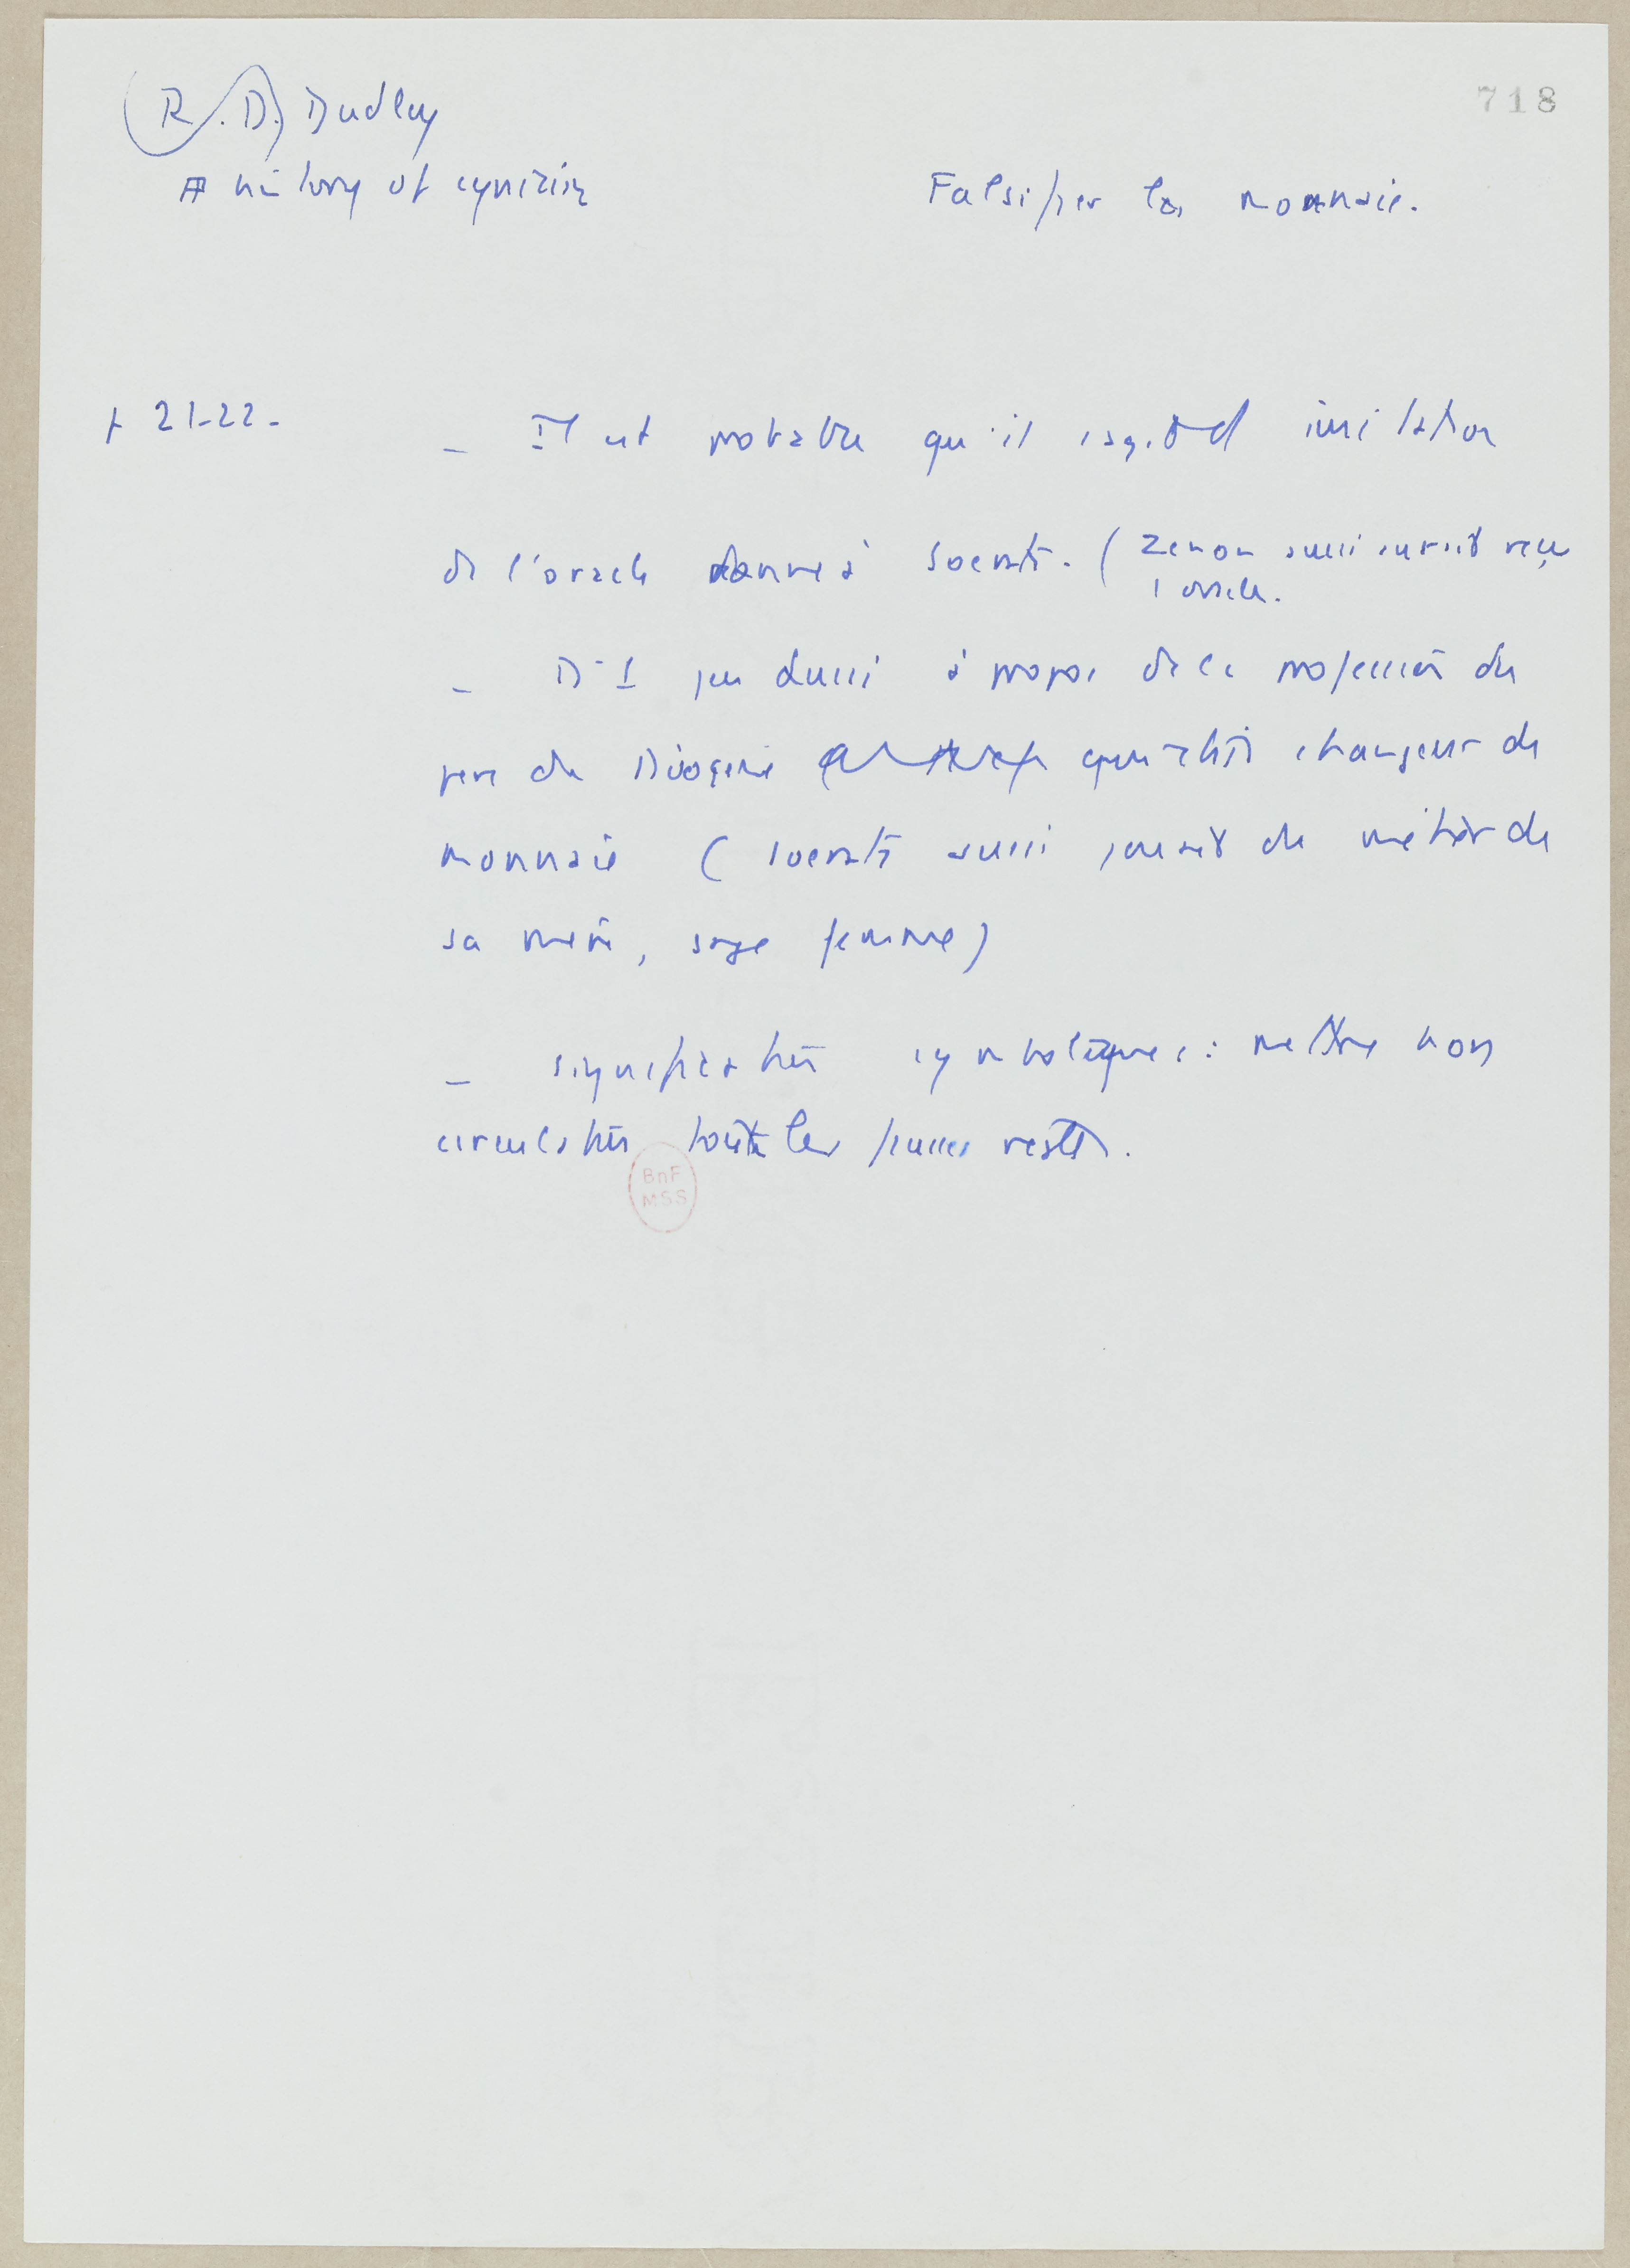 718
(R. D.) Dudley
A history of cynicism
Falsifier la monnaie.
p 21-22.
_ Il est notable qu'il s'agit d'imitation
de l'oracle donné à Socrate. (Zénon aussi aurait reçu
l'oracle.
_ aussi à propos de la profession du
père de Diogène qui était changeur de
monnaie (Socrate aussi jouait du métier de
sa mère, sage femme)
_ signification symbolique : mettre hors
circulation toutes les fausses
BnF
MSS